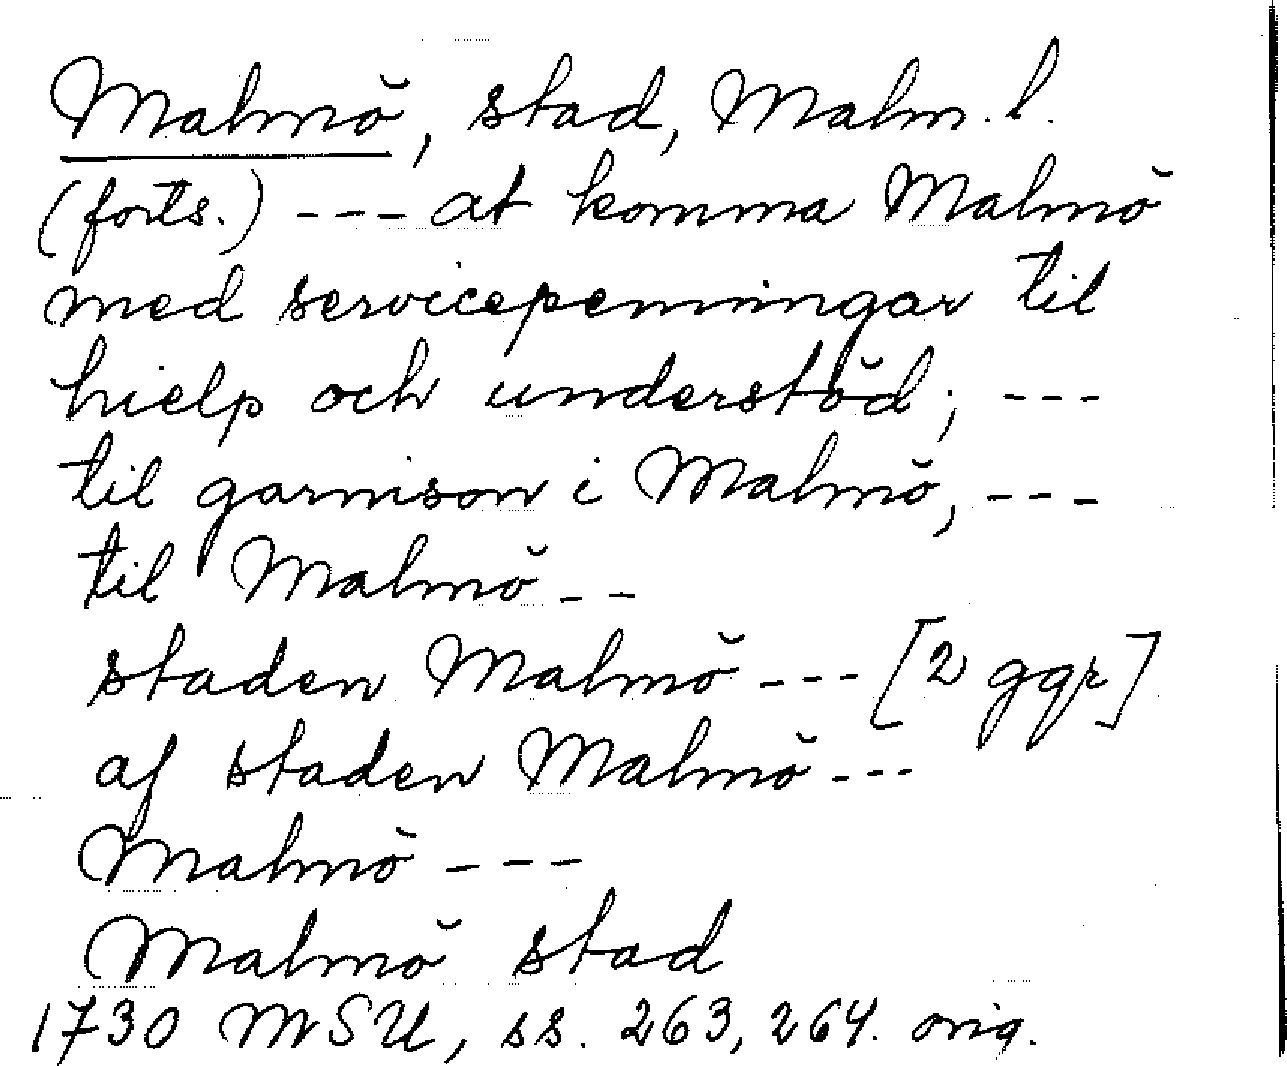 Malmö, stad, Malm. l.
(forts.) --- at komma Malmö
med servicepenningar til
hielp och understöd; ---
til garnison i Malmö, ---
til Malmö --
staden Malmö --- [2 ggr]
af staden Malmö ---
Malmö ---
Malmö stad
1730 MSU, ss. 263, 264. orig.